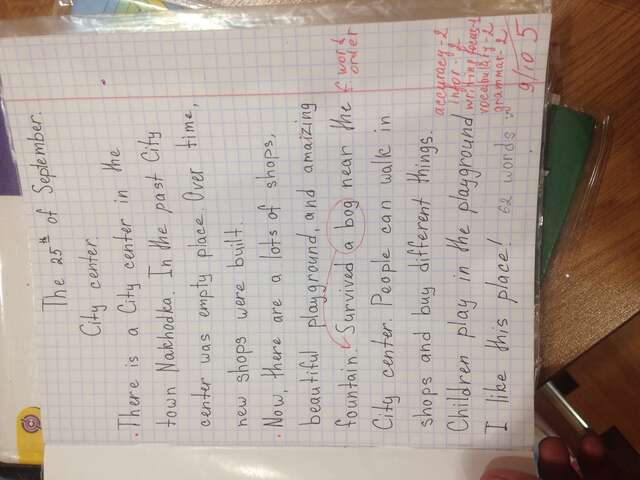 The 25th of September.
City center.
· There is a City center in the
town Nakhodka. In the past City
center was empty place. Over time,
new shops were built.
· Now, there are a lots of shops,
beautiful playground, and amaizing
fountain. Survived a bog near the
City center. People can walk in
shops and buy different things.
Children play in the playground
I like this place! 62 words
word
order
accuracy-2
vocabulary-2
grammar-2
9/10 5